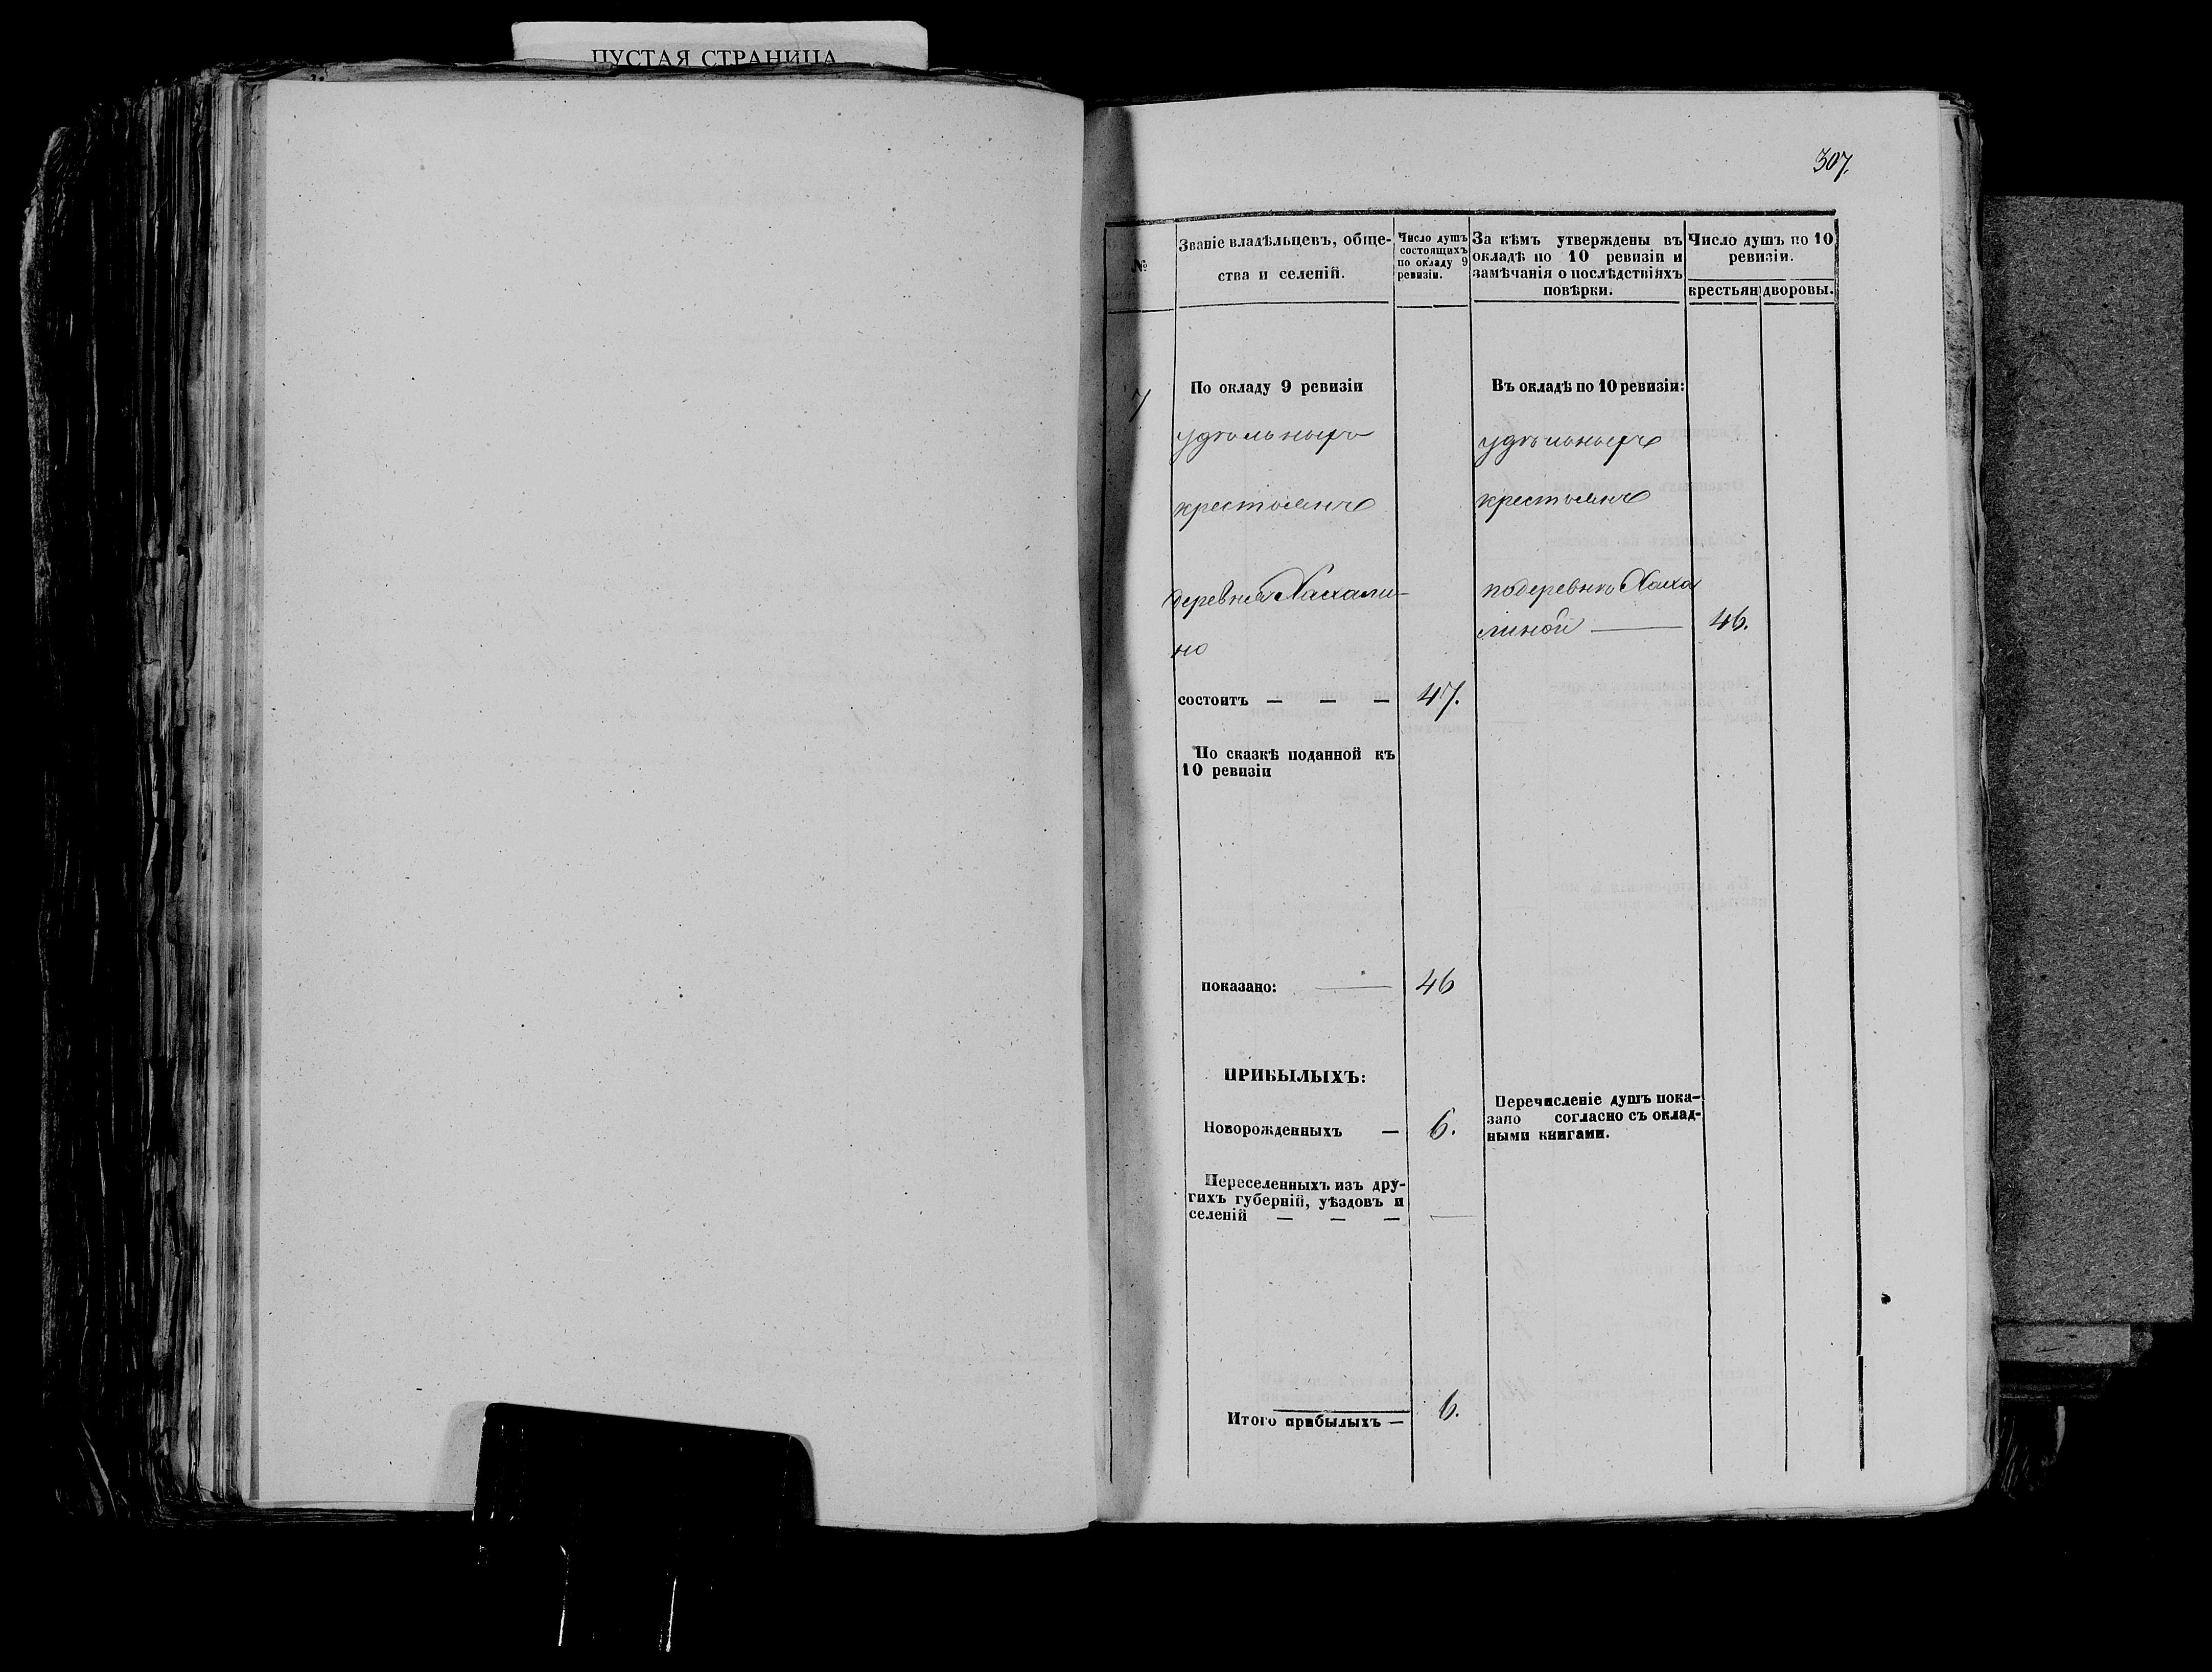 ПУСТАЯ СТРАНИЦА
307.
№
Званіе владѣльцевъ, обще-
ства и селеній.
Число душъ
состоящихъ
по окладу 9
ревизіи.
За кѣмъ утверждены въ
окладѣ по 10 ревизіи и
замѣчанія о послѣдствіяхъ
повѣрки.
Число душъ по 10
ревизіи.
крестьян
дворовы.
7
По окладу 9 ревизіи
удѣльныхъ
крестьянъ
деревня Хахали-
но
состоитъ — — — 47.
По сказкѣ поданной къ
10 ревизіи
показано: — 46
ПРИБЫЛЫХЪ:
Новорожденныхъ — 6.
Переселенныхъ изъ дру-
гихъ губерній, уѣздовъ и
селеній — — — —
Итого прибылыхъ — 6.
Въ окладѣ по 10 ревизіи:
удѣльныхъ
крестьянъ
по деревнѣ Хаха
линой — 46.
Перечисленіе душъ пока-
зано согласно съ оклад-
ными книгами.